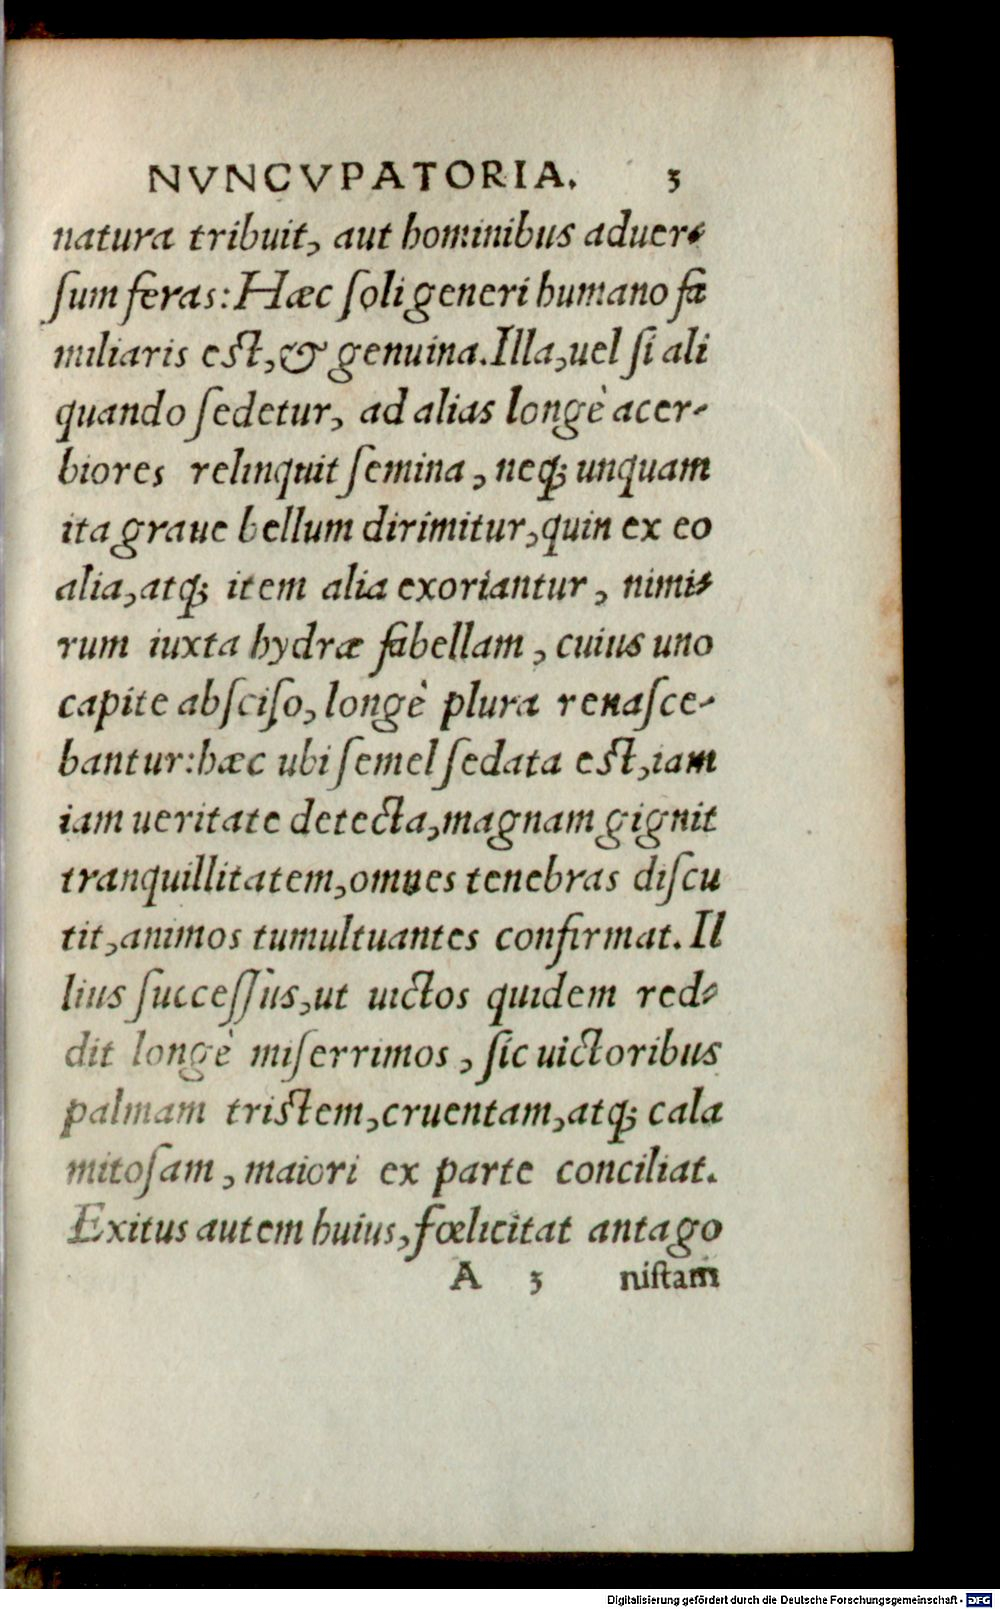 NVNCVPATORIA. 3
natura tribuit, aut hominibus aduer-
ſum feras: Hæc ſoli generi humano fa
miliaris eſt, & genuina. Illa, uel ſi ali
quando ſedetur, ad alias longè acer-
biores relinquit ſemina, neq; unquam
ita graue bellum dirimitur, quin ex eo
alia, atq; item alia exoriantur, nimi-
rum iuxta hydræ fabellam, cuius uno
capite abſciſo, longè plura renaſce-
bantur: hæc ubi ſemel ſedata eſt, iam
iam ueritate detecta, magnam gignit
tranquillitatem, omnes tenebras diſcu
tit, animos tumultuantes confirmat. Il
lius ſucceſſus, ut uictos quidem red-
dit longè miſerrimos, ſic uictoribus
palmam triſtem, cruentam, atq; cala
mitoſam, maiori ex parte conciliat.
Exitus autem huius, fœlicitat antago
A 3 niſtam
Digitalisierung gefördert durch die Deutsche Forschungsgemeinschaft - DFG